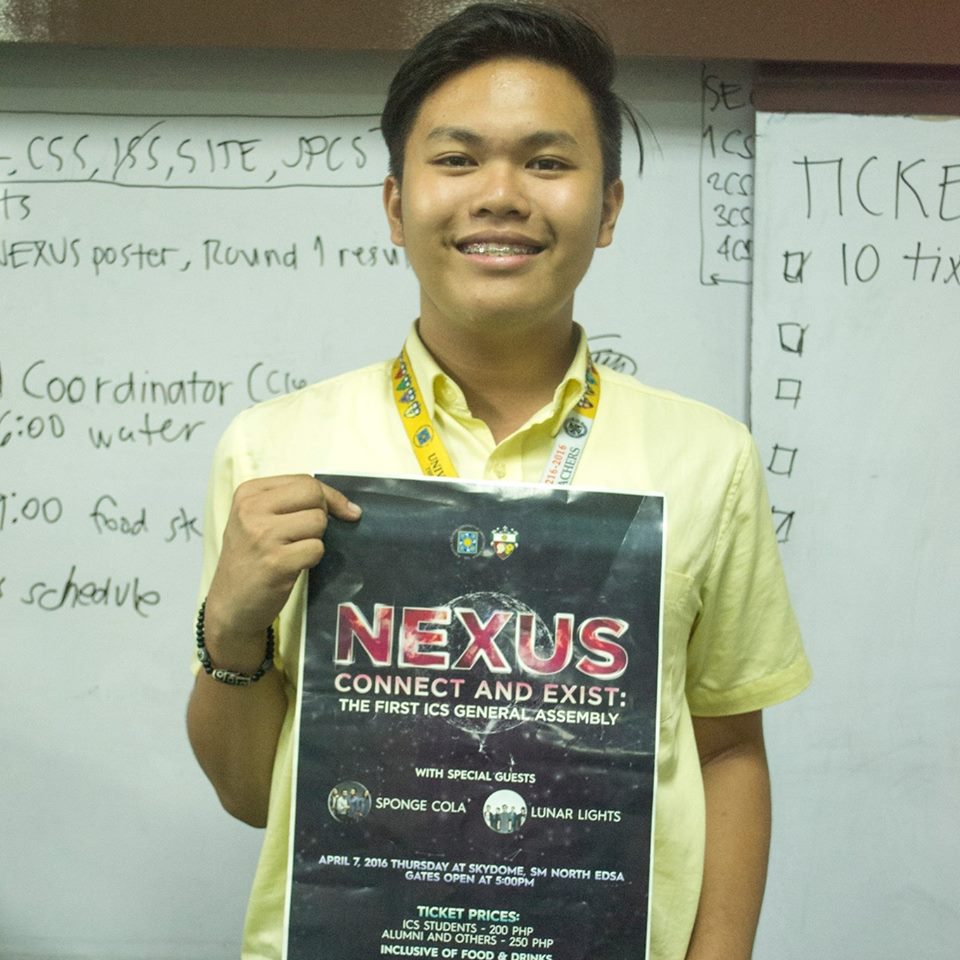 CSS, ISS, SITE, JPCS
NEXUS poster, Round 1
Coordinator
6:00 water
9:00 food
schedule
1CS
2CS
3CS
4CS
10 tix
216-2016
NEXUS
CONNECT AND EXIST:
THE FIRST ICS GENERAL ASSEMBLY
WITH SPECIAL GUESTS
SPONGE COLA
LUNAR LIGHTS
APRIL 7, 2016 THURSDAY AT SKYDOME, SM NORTH EDSA
GATES OPEN AT 5:00PM
TICKET PRICES:
ICS STUDENTS - 200 PHP
ALUMNI AND OTHERS - 250 PHP
INCLUSIVE OF FOOD & DRINKS